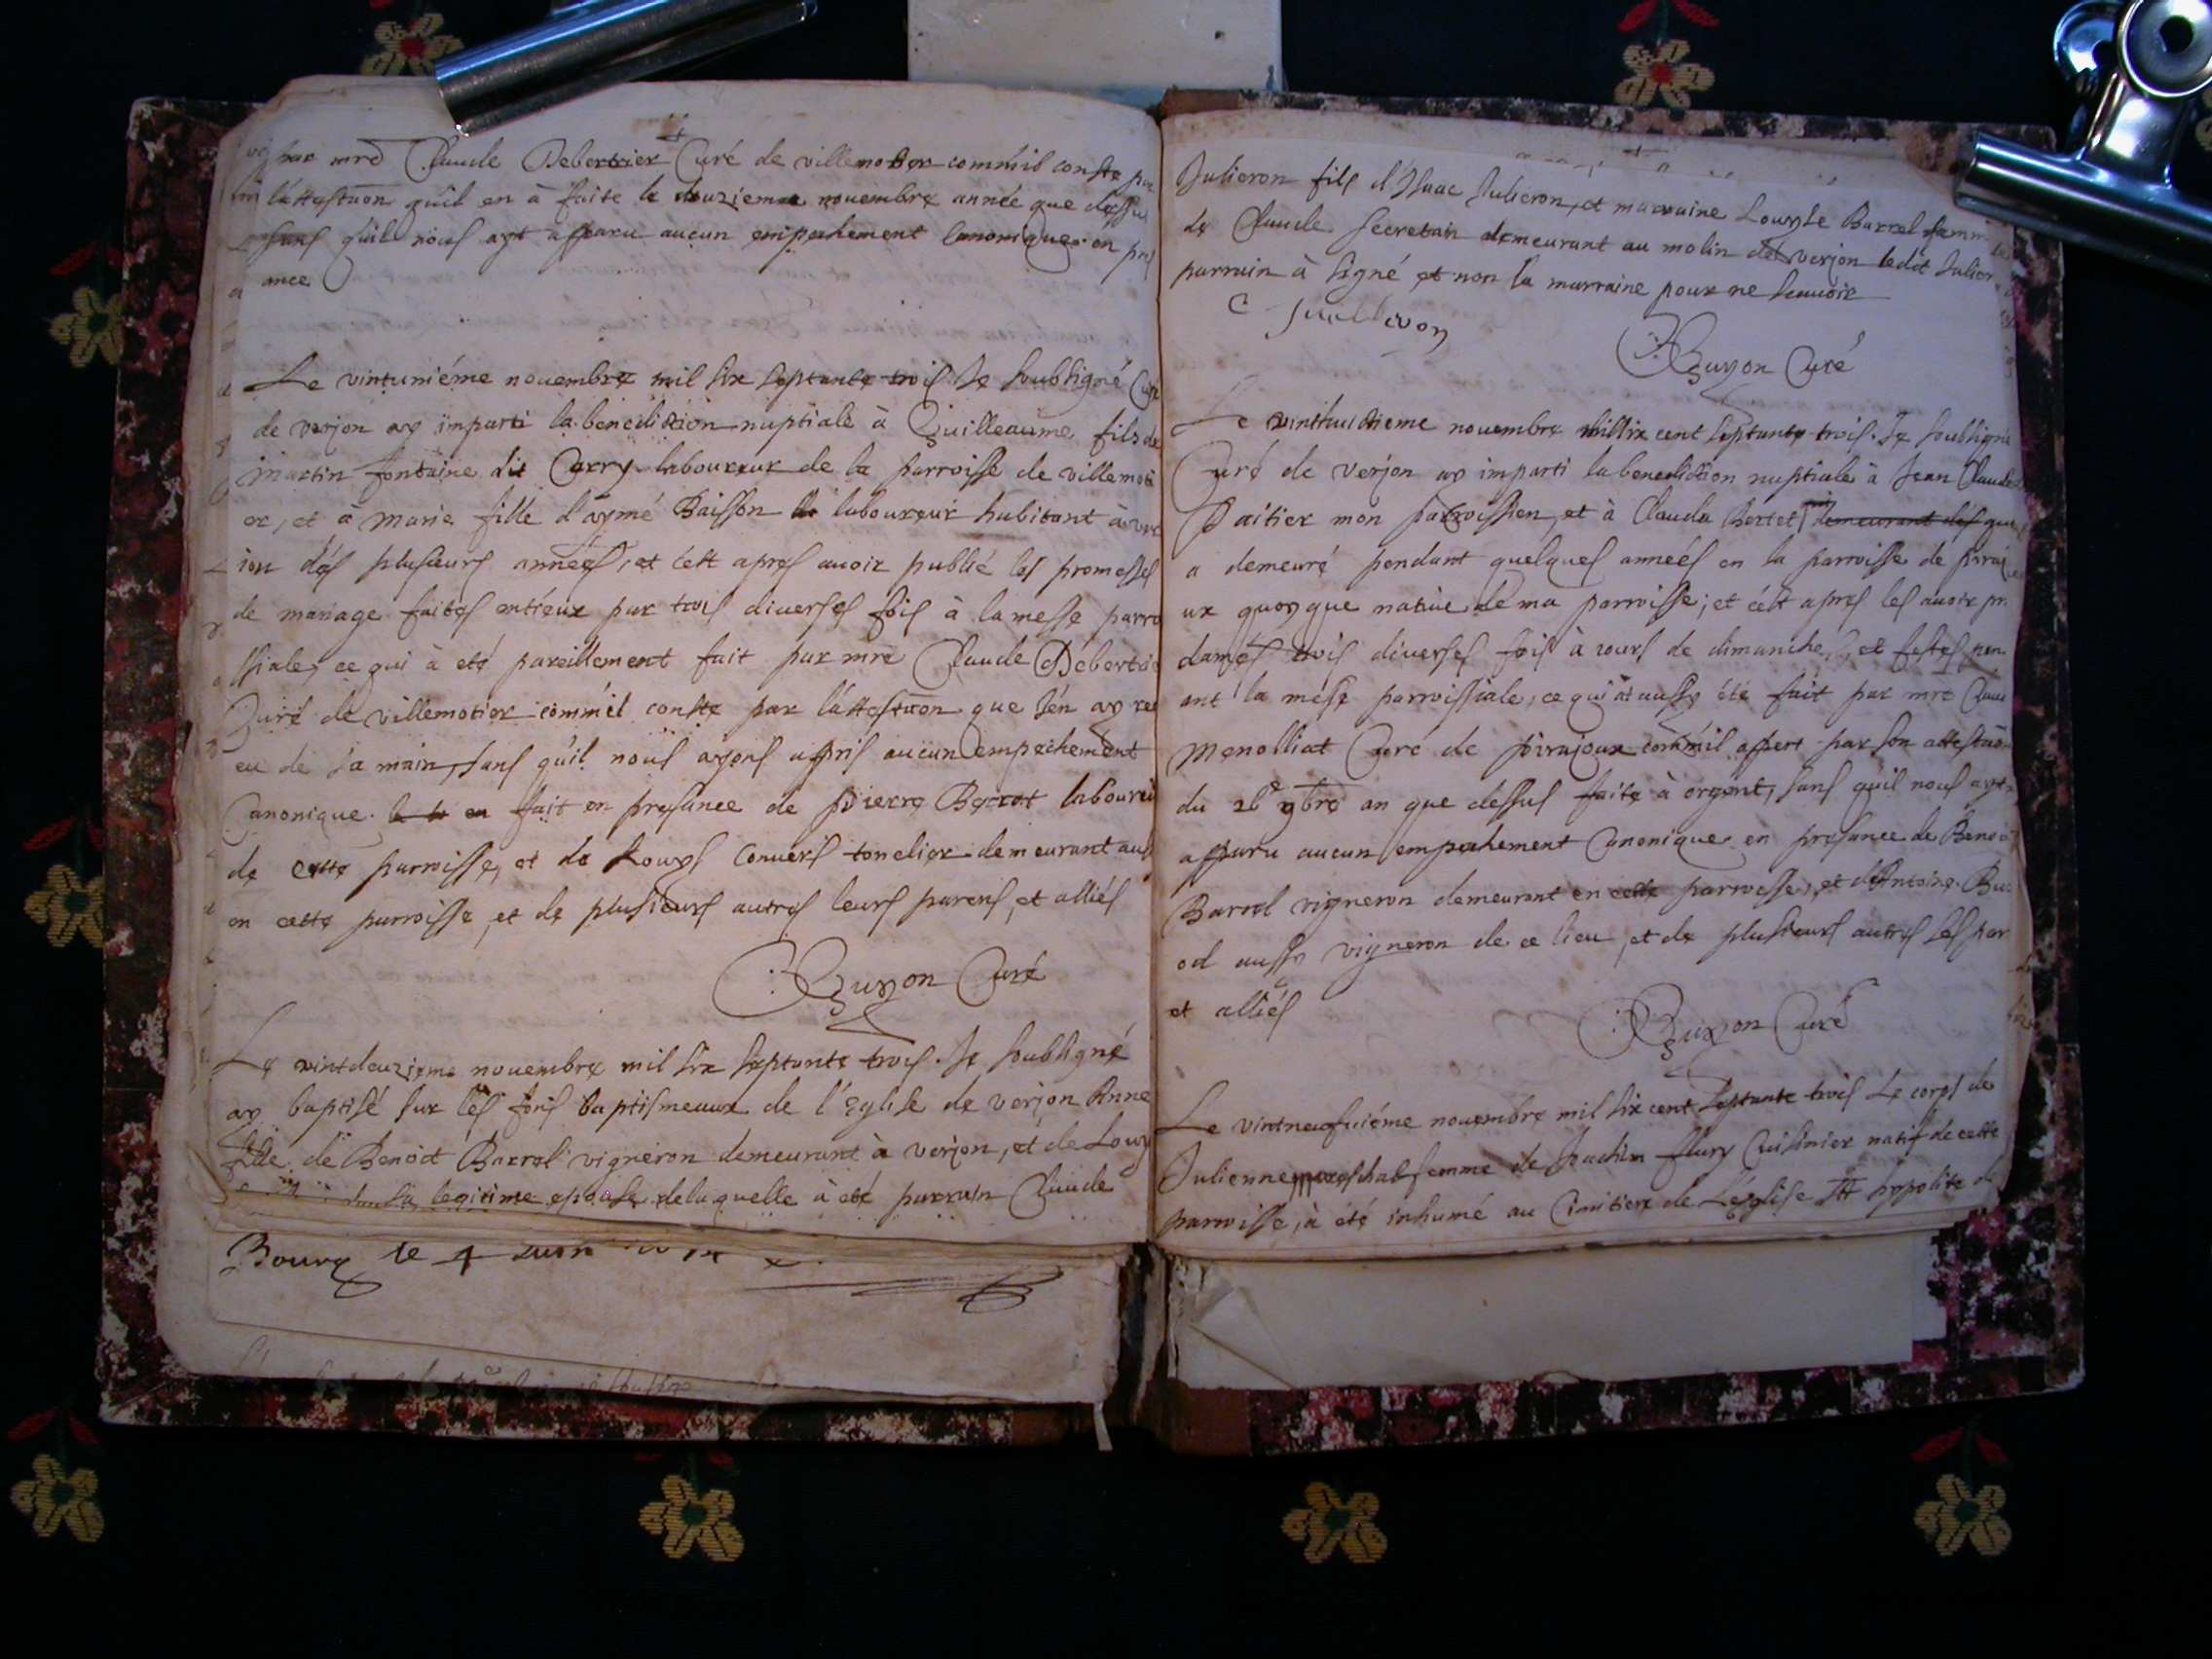 par mre Claude Debertrier Curé de villemotier comm'il conste par
l'attestaon qu'il en à faite le douzieme nouembre année que dessus
sans qu'il nous ayt apparu aucun empechement Canonique en pres
ance
Le vintuniéme nouembre mil six septante trois Je soubsigné Curé
de verjon ay imparti la benediction nuptiale à Guilleaume fils de
Martin fontaine dit Carry laboureur de la parroisse de villemoti
er, et à Marie fille d'aymé Baisson laboureur habitant à ver
ion dés plusieurs années, et cest apres auoir publié les promesses
de mariage faites entreux par trois diverses fois à la messe parro
ssiale, ce qui à eté pareillement fait par mre Claude Debertrie
Curé de villemotier comm'il conste par l'attestaon que J'en ay re
eu de sa main, sans qu'il nous ayons appris aucun empechement
Canonique. fait en presance de pierre Berrot laboureu
de cette parroisse, et de Louys Convers tonelier demeurant aus
en cette parroisse, et de plusieurs autres leurs parens, et alliés
Buyon Curé
Le vintdeuzieme nouembre mil six septante trois. Je soubsigné
ay baptisé sur les fons baptismeaux de l'Eglise de verjon Anne
fille de Benoit Barrel vigneron demeurant à verjon, et de Louy
sa legitime epouse de laquelle à eté parrain Claude
Bourg le 4 Juin
Julieron fils d'Isaac Julieron, et marraine Louyse Barrel femme
de Claude Secretain demeurant au molin de verjon ledit Julier
parrain à signé et non la marraine pour ne scauoir
C Jullieron
Buyon Curé
Le vinthuictieme nouembre mil six cent septante trois. Je soubsigné
Curé de verjon ay imparti la benediction nuptiale à Jean Claude
Paitier mon parroissien, et à Clauda Bertet qui demeurant des que
a demeuré pendant quelques années en la parroisse de pirajo
ux quoyque natiue de ma parroisse; et cest apres les auoir pr
damés trois diverses fois à iours de dimanche, et festes pen
ant la messe parroissiale, ce qui at aussy été fait par mre Clau
Menolliat Curé de pirajoux comm'il appert par son attestaon
du 26e 9bre an que dessus faite à orgent, sans qu'il nous ayt
apparu aucun empechement Canonique en presance de Benoi
Barrel vigneron demeurant en cette parroisse, et d'Antoine Bu
od aussy vigneron de ce lieu, et de plusieurs autres ses par
et alliés
Buyon Curé
Le vintneufuiéme nouembre mil six cent septante trois Le corps de
Julienne mareschal femme de Joachim flury Cuisinier natif de cette
parroisse, à eté inhumé au Cimitiere de L'église St hypolite de